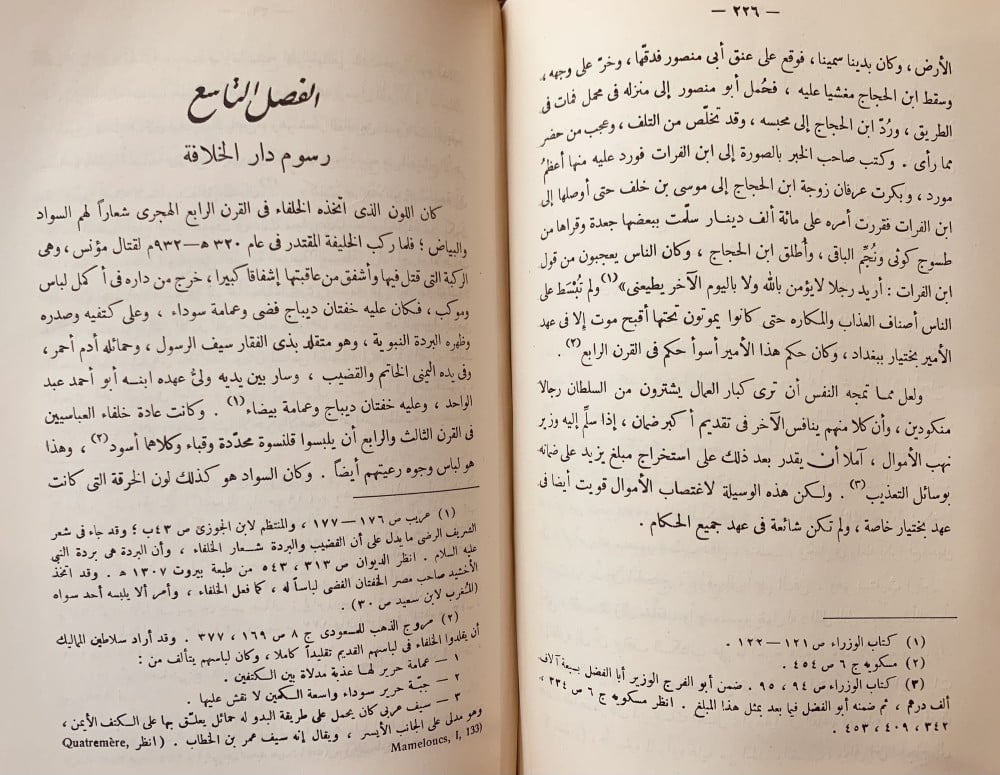 — ٢٢٦ —
الأرض ، وكان بدينا سمينا ، فوقع على عنق أبى منصور فدقّها ، وخرّ على وجهه ،
وسقط ابن الحجاج مغشيا عليه ، فحُمل أبو منصور إلى منزله فى محمل فمات فى
الطريق ، ورُدّ ابن الحجاج إلى محبسه ، وقد تخلّص من التلف ، وعجب من حضر
مما رأى . وكتب صاحب الخبر بالصورة إلى ابن الفرات فورد عليه منها أعظمُ
مورد ، وبكرت عرفان زوجة ابن الحجاج إلى موسى بن خلف حتى أوصلها إلى
ابن الفرات فقررت أمره على مائة ألف دينار سلّمت ببعضها جعدة وقراها من
طسوج كوثى ونُجِّم الباقى ، وأُطلق ابن الحجاج ، وكان الناس يعجبون من قول
ابن الفرات : أريد رجلا لايؤمن بالله ولا باليوم الآخر يطيعنى»(١) ولم تُبْسَط على
الناس أصناف العذاب والمكاره حتى كانوا يموتون تحتها أقبح موت إلا فى عهد
الأمير بختيار ببغداد ، وكان حكم هذا الأمير أسوأ حكم فى القرن الرابع(٢) .
ولعل مما تمجه النفس أن ترى كبار العمال يشترون من السلطان رجالا
منكودين ، وأن كلا منهم ينافس الآخر فى تقديم أكبر ضمان ، إذا سلِّم إليه وزير
نهب الأموال ، آملا أن يقدر بعد ذلك على استخراج مبلغ يزيد على ضمانه
بوسائل التعذيب(٣) . ولكن هذه الوسيلة لاغتصاب الأموال قويت أيضا فى
عهد بختيار خاصة ، ولم تكن شائعة فى عهد جميع الحكام .
(١) كتاب الوزراء ص ١٢١—١٢٢ .
(٢) مسكويه ج ٦ ص ٤٥٤ .
(٣) كتاب الوزراء ص ٩٤ ، ٩٥ . ضمن أبو الفرج الوزير أبا الفضل بسبعة آلاف
ألف درهم ، ثم ضمنه أبو الفضل فيما بعد بمثل هذا المبلغ . انظر مسكويه ج ٦ ص ٢٣٤ ،
٣٤٢ ، ٤٠٩ ، ٤٥٣ .
الفصل التاسع
رسوم دار الخلافة
كان اللون الذى اتخذه الخلفاء فى القرن الرابع الهجرى شعاراً لهم السواد
والبياض ؛ فلما ركب الخليفة المقتدر فى عام ٣٢٠ ه‍—٩٣٢م لقتال مؤنس ، وهى
الركبة التى قتل فيها وأشفق من عاقبتها إشفاقا كبيرا ، خرج من داره فى أكمل لباس
وموكب ، فكان عليه خفتان ديباج فضى وعمامة سوداء ، وعلى كتفيه وصدره
وظهره البردة النبوية ، وهو متقلد بذى الفقار سيف الرسول ، وحمائله أدم أحمر ،
وفى يده اليمنى الخاتم والقضيب ، وسار بين يديه ولىُّ عهده ابنه أبو أحمد عبد
الواحد ، وعليه خفتان ديباج وعمامة بيضاء(١) . وكانت عادة خلفاء العباسيين
فى القرن الثالث والرابع أن يلبسوا قلنسوة محدّدة وقباء وكلاهما أسود(٢) ، وهذا
هو لباس وجوه رعيتهم أيضاً . وكان السواد هو كذلك لون الخرقة التى كانت
(١) عريب ص ١٧٦—١٧٧ ، والمنتظم لابن الجوزى ص ٤٣ب ؛ وقد جاء فى شعر
الشريف الرضى ما يدل على أن القضيب والبردة شعار الخلفاء ، وأن البردة هى بردة النبي
عليه السلام . انظر الديوان ص ٣١٣ ، ٥٤٣ من طبعة بيروت ١٣٠٧ ه‍ . وقد اتخذ
الأخشيد صاحب مصر الخفتان الفضى لباساً له ، كما فعل الخلفاء ، وأمر ألا يلبسه أحد سواه
(المُغرب لابن سعيد ص ٣٠) .
(٢) مروج الذهب للمسعودى ج ٨ ص ١٦٩ ، ٣٧٧ . وقد أراد سلاطين المماليك
أن يقلدوا الخلفاء فى لباسهم القديم تقليداً كاملا ، وكان لباسهم يتألف من :
١ — عمامة حرير لها عذبة مدلاة بين الكتفين .
٢ — جبّة حرير سوداء واسعة الكمين لا نقش عليها .
٣ — سيف عربى كان يحمل على طريقة البدو له حمائل يعلّق بها على الكتف الأيمن ،
وهو مدلى على الجانب الأيسر ، ويقال إنه سيف عمر بن الخطاب . (انظر Quatremère,
Mameloucs, I, 133)